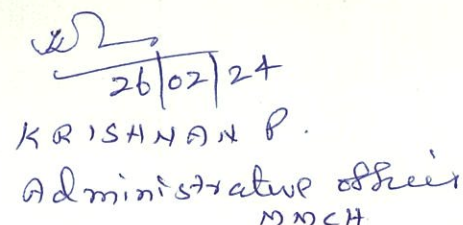 26/02/24
KRISHNAN P.
Administrative officer
MMCH